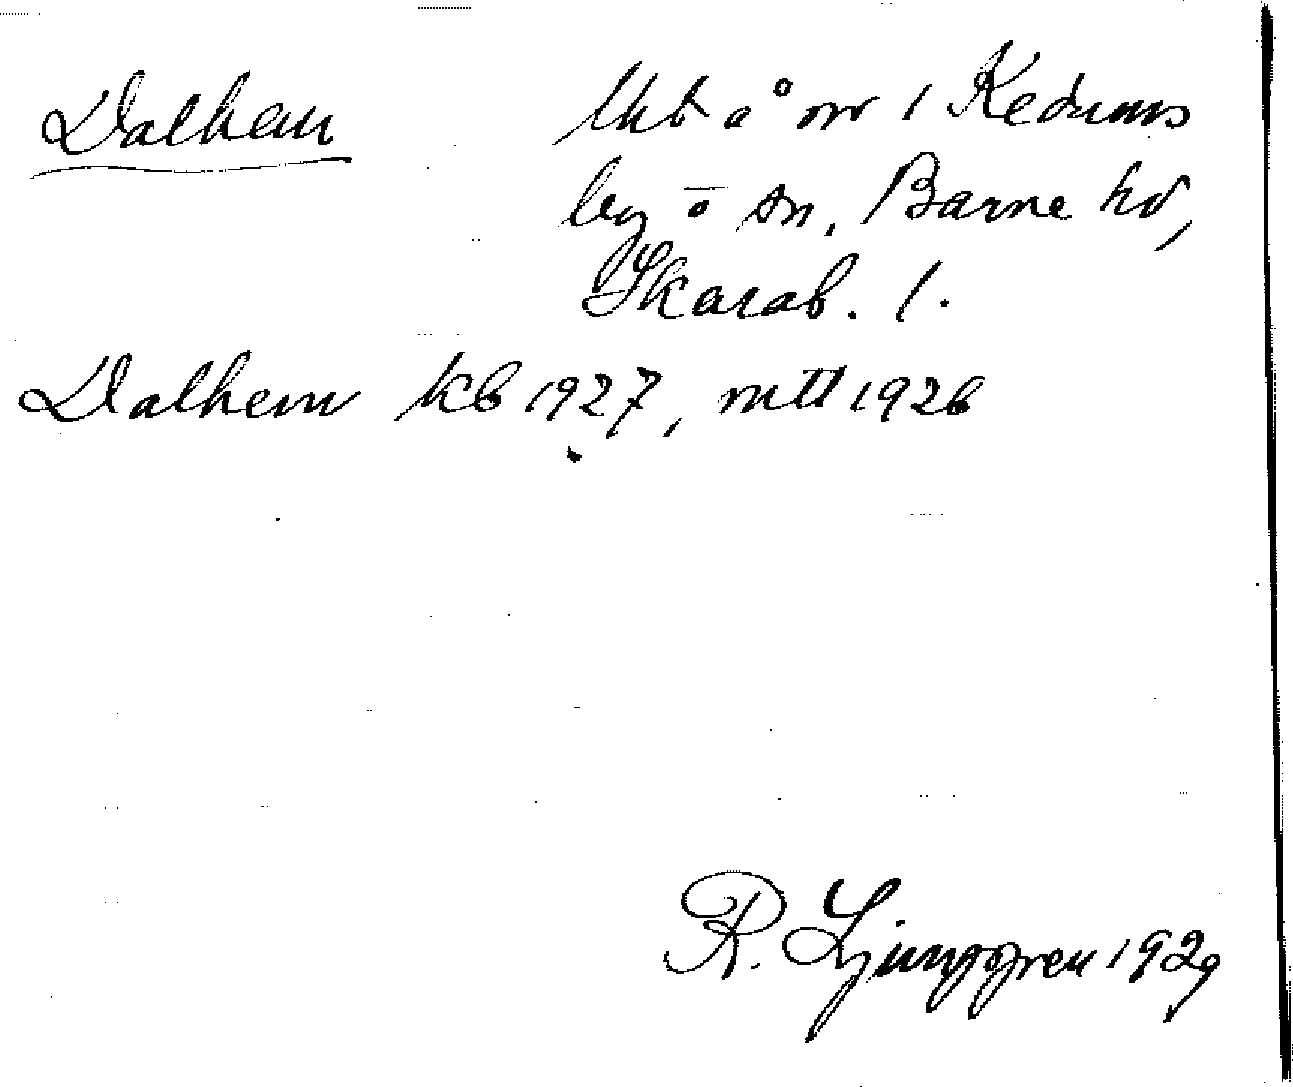 Dalhem lht å nr 1 Kedums
by o sn, Barne hd,
Skarab. l.
Dalhem kb 1927, mtl 1926
R. Ljunggren 1929